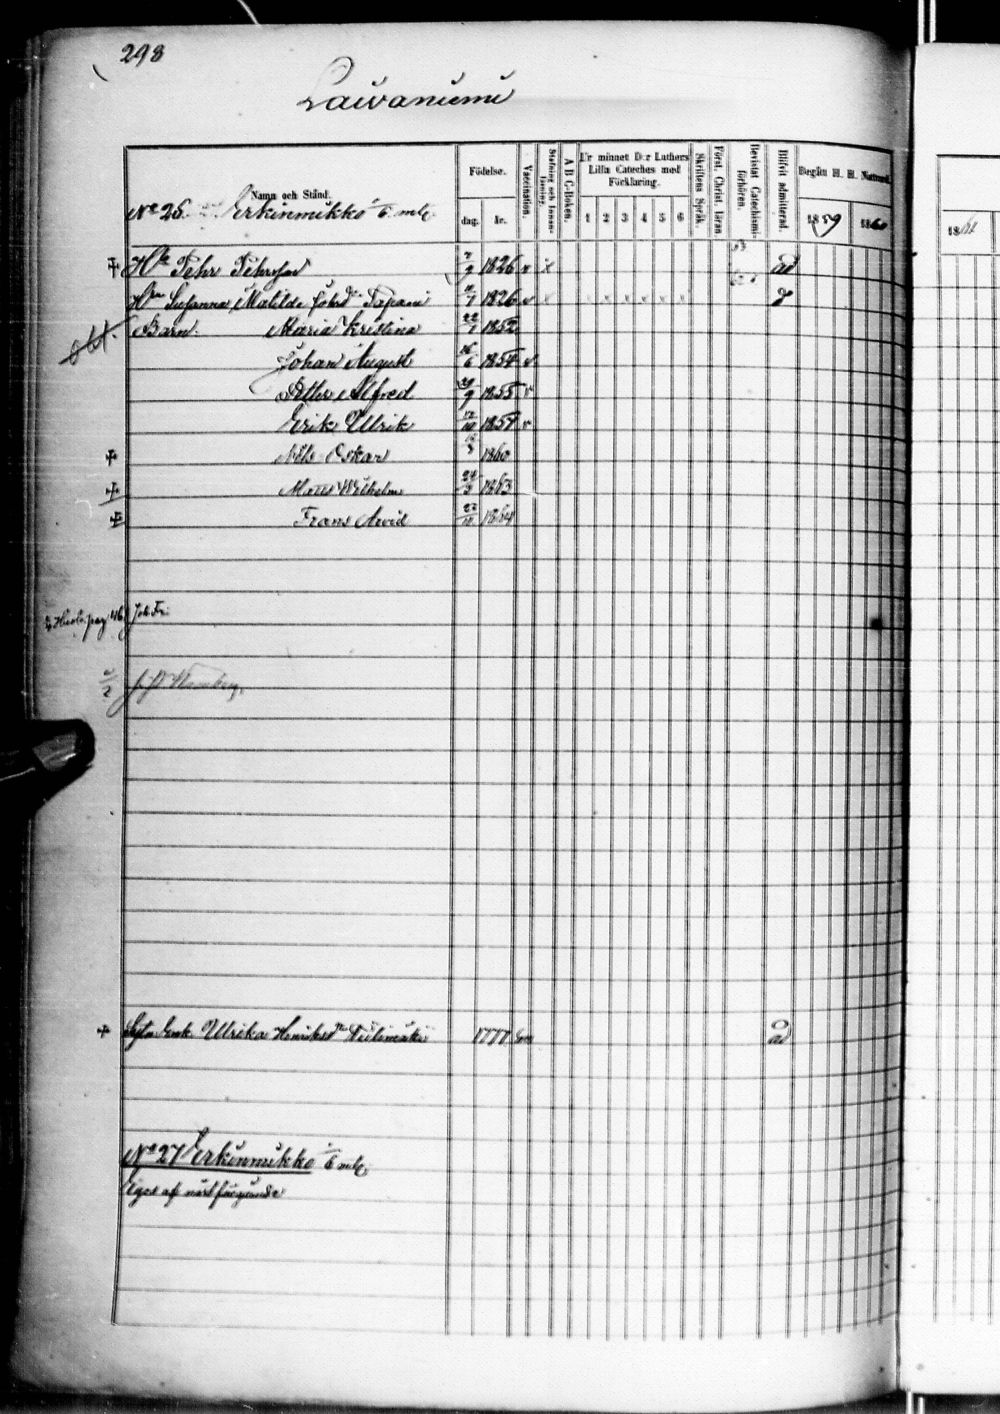 298
Laivaniemi
Namn och Stånd.
Födelse.
dag.
år.
Vaccination.
Stafning och Innanläsning.
A B C-Boken.
Ur minnet D:r Luthers Lilla Cateches med Förklaring.
1 2 3 4 5 6
Skriftens Språk.
Först. Christ. läran.
Bevistat Catechismiförhören.
Blifvit admitterad.
Begått H. H. Nattvard.
1859 1860
186
No 26. Erkinmikko 1/6 mtl.
Pehr Pehrsson 1826 v x ad
Susanna Matilda Johsdr Tapani 1826 v x x x x x x
Barn. Maria Kristina 22/1 1852
Johan August 16/6 1854 v
Petter Alfred 29/9 1855 v
Erik Ulrik 12/10 1857 v
Nils Oskar 1860
Mats Wilhelm 24/3 1863
Frans Arvid 1864
pag 46 Joh. Fr.
Enk. Ulrika Henriksdr 1777 ad
No 27 Erkinmikko 1/6 mtl.
Eges af näst föregående